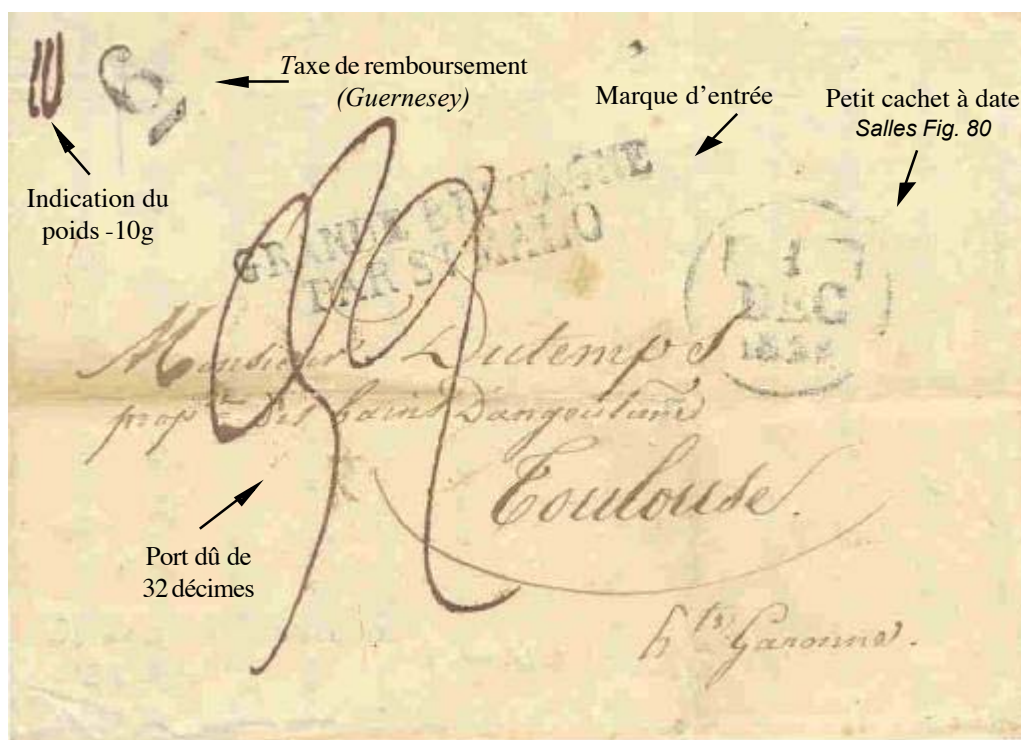 Taxe de remboursement
(Guernesey)
Marque d'entrée
Petit cachet à date
Salles Fig. 80
Indication du
poids -10g
GRANDE BRETAGNE
PAR ST MALO
1
DEC
Monsieur Dutemps
prop.re des bains D'angoulême
Toulouse.
Port dû de
32 décimes
h.te Garonne.